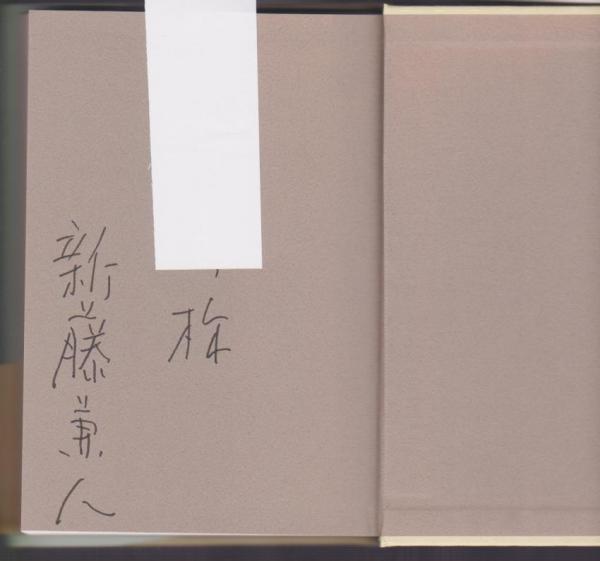 様
新藤兼人